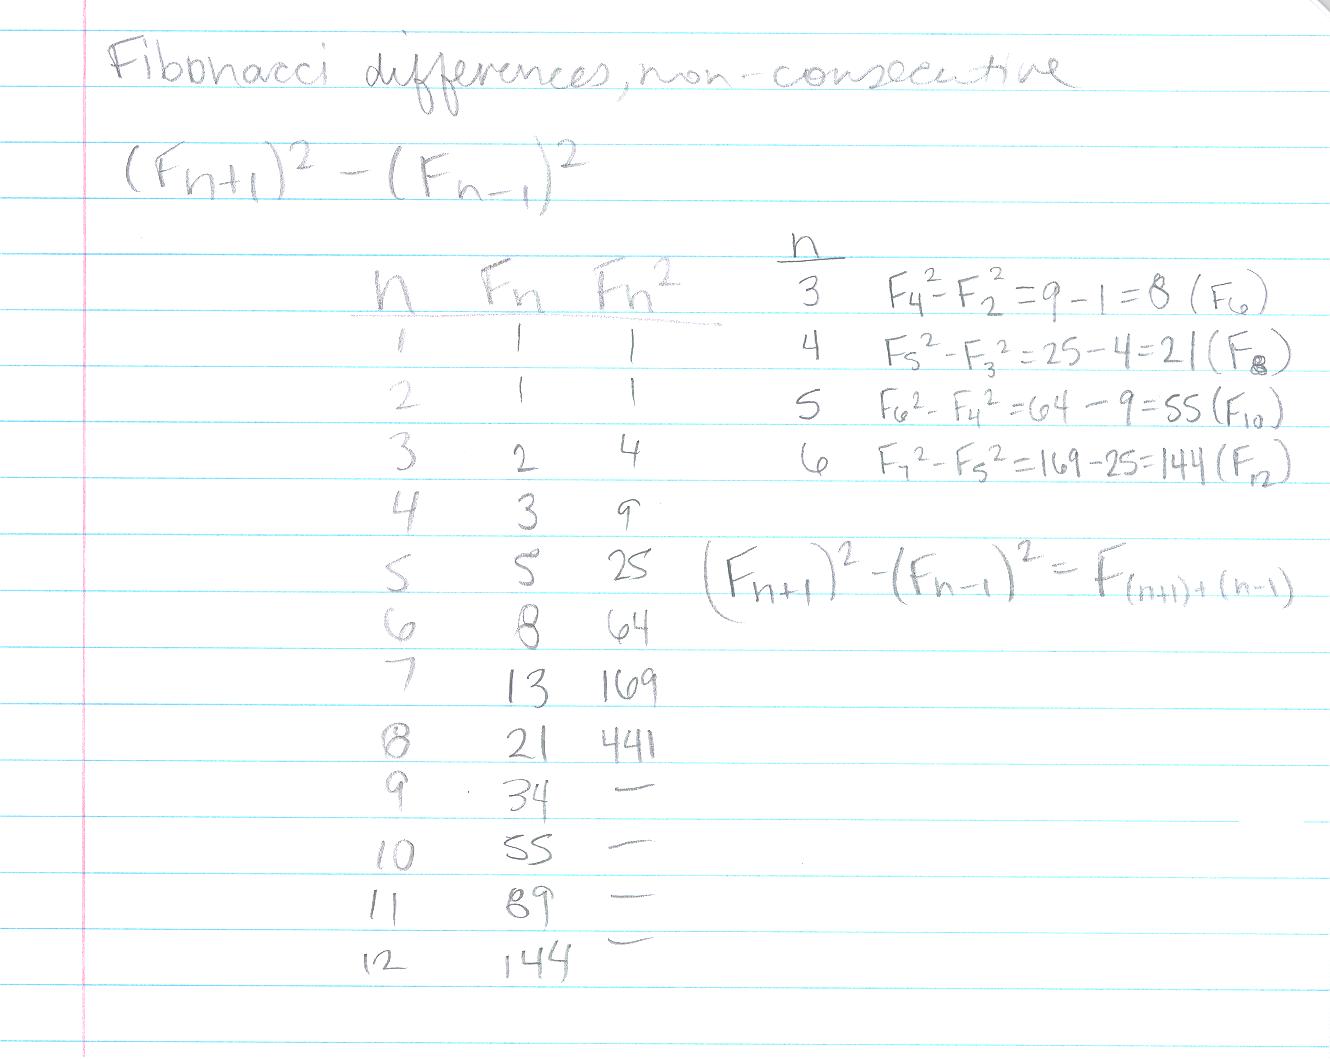 Fibonacci differences, non-consecutive
(Fn+1)² - (Fn-1)²
n Fn Fn²
1 1 1
2 1 1
3 2 4
4 3 9
5 5 25
6 8 64
7 13 169
8 21 441
9 34 —
10 55 —
11 89 —
12 144 —
n
3 F₄² - F₂² = 9 - 1 = 8 (F₆)
4 F₅² - F₃² = 25 - 4 = 21 (F₈)
5 F₆² - F₄² = 64 - 9 = 55 (F₁₀)
6 F₇² - F₅² = 169 - 25 = 144 (F₁₂)
(Fn+1)² - (Fn-1)² = F(n+1)+(n-1)